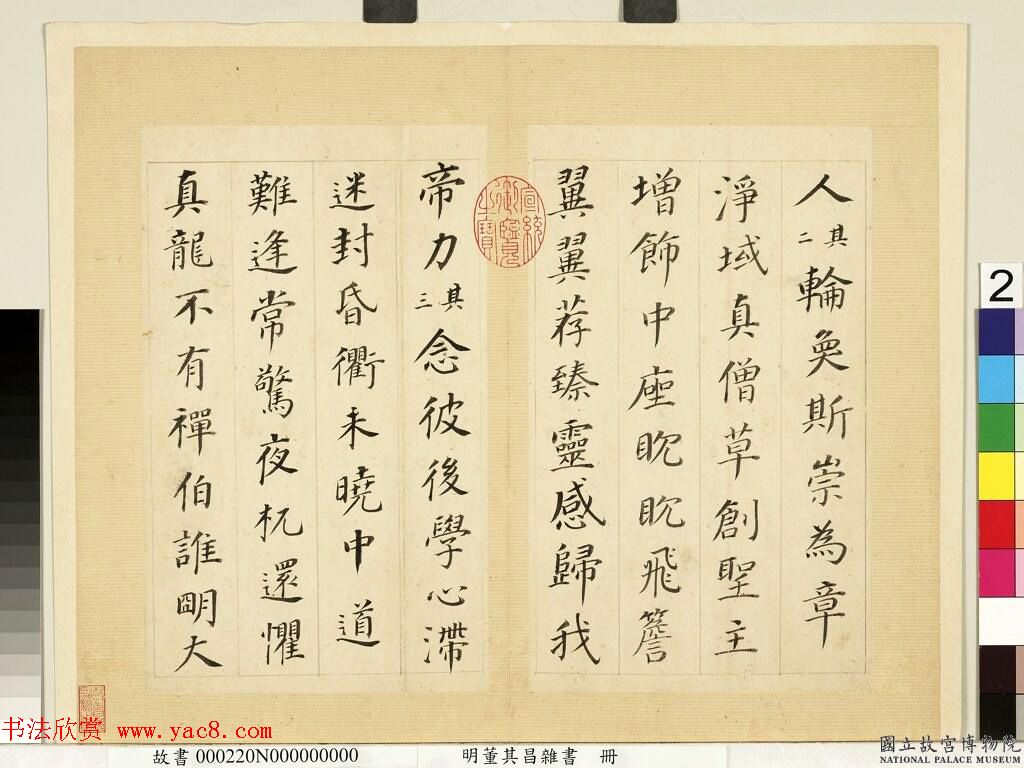 人其二輪奐斯崇為章
淨域真僧草創聖主
增飾中座眈眈飛簷
翼翼荐臻靈感歸我
帝力其三念彼後學心滯
迷封昏衢未曉中道
難逢常驚夜杌還懼
真龍不有禪伯誰明大
宣統御覽之寶
2
书法欣赏 www.yac8.com
故書 000220N000000000 明董其昌雜書 冊
國立故宮博物院
NATIONAL PALACE MUSEUM